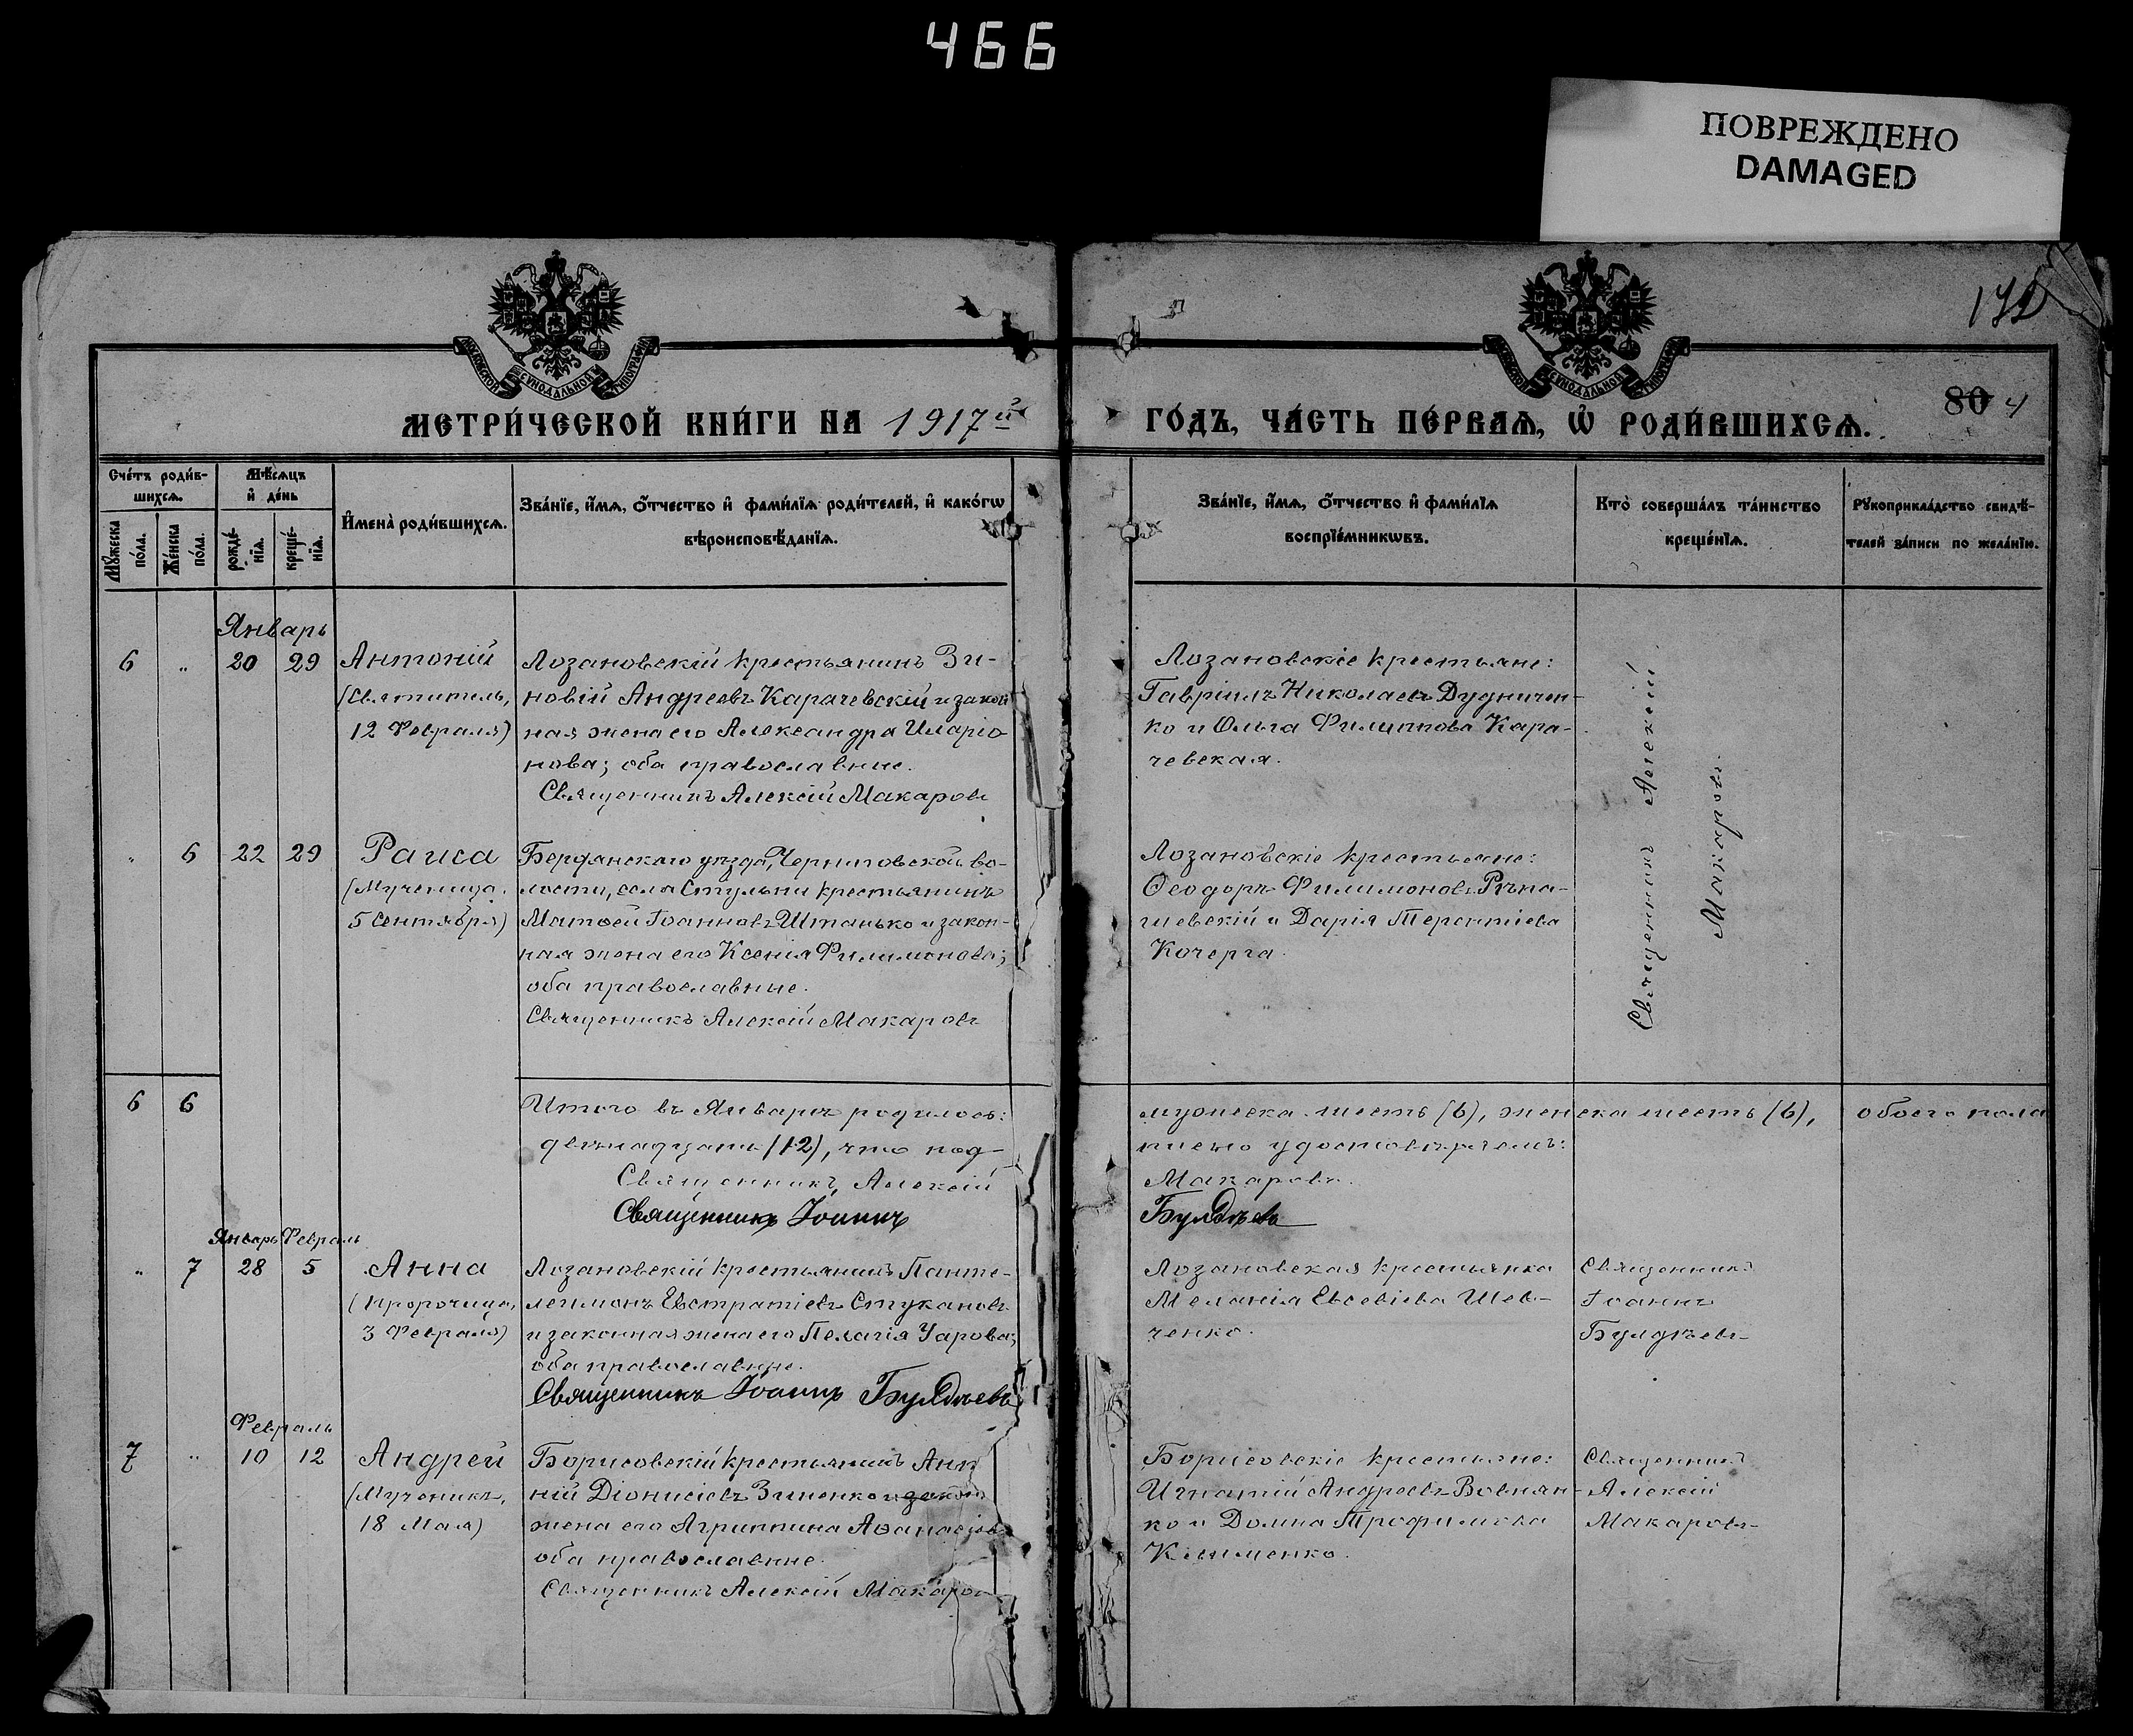 466
ПОВРЕЖДЕНО
DAMAGED
МЕТРИ́ЧЕСКОЙ КНИ́ГИ НА 1917й
ГО́ДЪ, ЧА́СТЬ ПЕ́РВАѦ, Ѡ҆ РОДИ́ВШИХСѦ.
80 4
Сче́тъ роди́в-
шихсѧ.
Мѣ́сѧцъ
и҆ де́нь
Мꙋ́жеска
по́ла.
Же́нска
по́ла.
рожде́-
нїѧ.
креще́-
нїѧ.
И҆мена̀ роди́вшихсѧ.
Зва́нїе, и҆́мѧ, ѻ҆́тчество и҆ фами́лїѧ роди́телей, и҆ како́гѡ
вѣроисповѣ́данїѧ.
Зва́нїе, и҆́мѧ, ѻ҆́тчество и҆ фами́лїѧ
воспрїе́мникѡвъ.
Кто̀ соверша́лъ та́инство
креще́нїѧ.
Рꙋкоприкла́дство свидѣ́-
телей за́писи по жела́нїю.
Январь
6 „ 20 29 Антоній
(Святитель,
12 Февраля)
Лозановскій крестьянинъ Зи-
новій Андреевъ Карачевскій и закон
ная жена его Александра Иларіо
нова; оба православные.
Священникъ Алексій Макаровъ
Лозановскіе крестьяне:
Гавріилъ Николаевъ Дудничен-
ко и Ольга Филиппова Кара-
чевская.
Священникъ Алексій
Макаровъ.
„ 6 22 29 Раиса
(Мученица,
5 Сентября)
Бердянскаго уѣзда, Черниговской во-
лости, села Стульни крестьянинъ
Матѳей Іоанновъ Штанько и закон-
ная жена его Ксенія Филимонова;
оба православные.
Священникъ Алексій Макаровъ
Лозановскіе крестьяне:
Ѳеодоръ Филимоновъ
и Дарія Терентіева
Кочерга.
6 6
Итого въ Январѣ родилось:
двѣнадцать (12), что под-
Священникъ Алексій
Священникъ Іоаннъ
мужеска шесть (6), женска шесть (6), обоего пола
писью удостовѣряемъ:
Макаровъ.
Булдѣевъ
Январь Февраль
„ 7 28 5 Анна
(пророчица,
3 Февраля)
Лозановскій крестьянинъ Панте-
леимонъ Евстратіевъ Стукановъ
и законная жена его Пелагія Уарова;
оба православные.
Священникъ Іоаннъ Булдѣевъ
Лозановская крестьянка
Меланія Евсевіева Шев-
ченко.
Священникъ
Іоаннъ
Булдѣевъ
Февраль
7 „ 10 12 Андрей
(Мученикъ,
18 Мая)
Борисовскій крестьянинъ
ній Діонисіевъ Зиненко и закон
жена его Агриппина Аѳанасіев
оба православные.
Священникъ Алексій Макаров
Борисовскіе крестьяне:
Игнатій Андреевъ Вовнян-
ко и Домна Трофимова
Клименко.
Священникъ
Алексій
Макаровъ